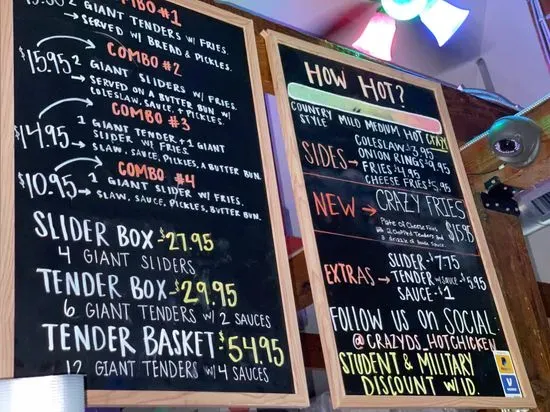 COMBO #1
2 GIANT TENDERS W/ FRIES.
→ SERVED W/ BREAD & PICKLES.
COMBO #2
$15.95 2 GIANT SLIDERS W/ FRIES.
→ SERVED ON A BUTTER BUN W/
COLESLAW, SAUCE, + PICKLES.
COMBO #3
$14.95 1 GIANT TENDER + 1 GIANT
SLIDER W/ FRIES.
→ SLAW, SAUCE, PICKLES, & BUTTER BUN.
COMBO #4
$10.95 1 GIANT SLIDER W/ FRIES.
→ SLAW, SAUCE, PICKLES, BUTTER BUN.
SLIDER BOX - $27.95
4 GIANT SLIDERS
TENDER BOX - $29.95
6 GIANT TENDERS W/ 2 SAUCES
TENDER BASKET $54.95
12 GIANT TENDERS W/ 4 SAUCES
HOW HOT?
COUNTRY STYLE MILD MEDIUM HOT CRAZY
SIDES → COLESLAW $3.95
ONION RINGS $9.95
FRIES $4.95
CHEESE FRIES $5.95
NEW → CRAZY FRIES
Plate of Cheese Fries
w/ 2 Chopped Tenders and
a drizzle of house sauce.
$15.95
EXTRAS → SLIDER - $7.75
TENDER W/ SAUCE - $5.95
SAUCE - $1
FOLLOW US ON SOCIAL:
@CRAZYDS_HOTCHICKEN
STUDENT & MILITARY
DISCOUNT W/ ID.